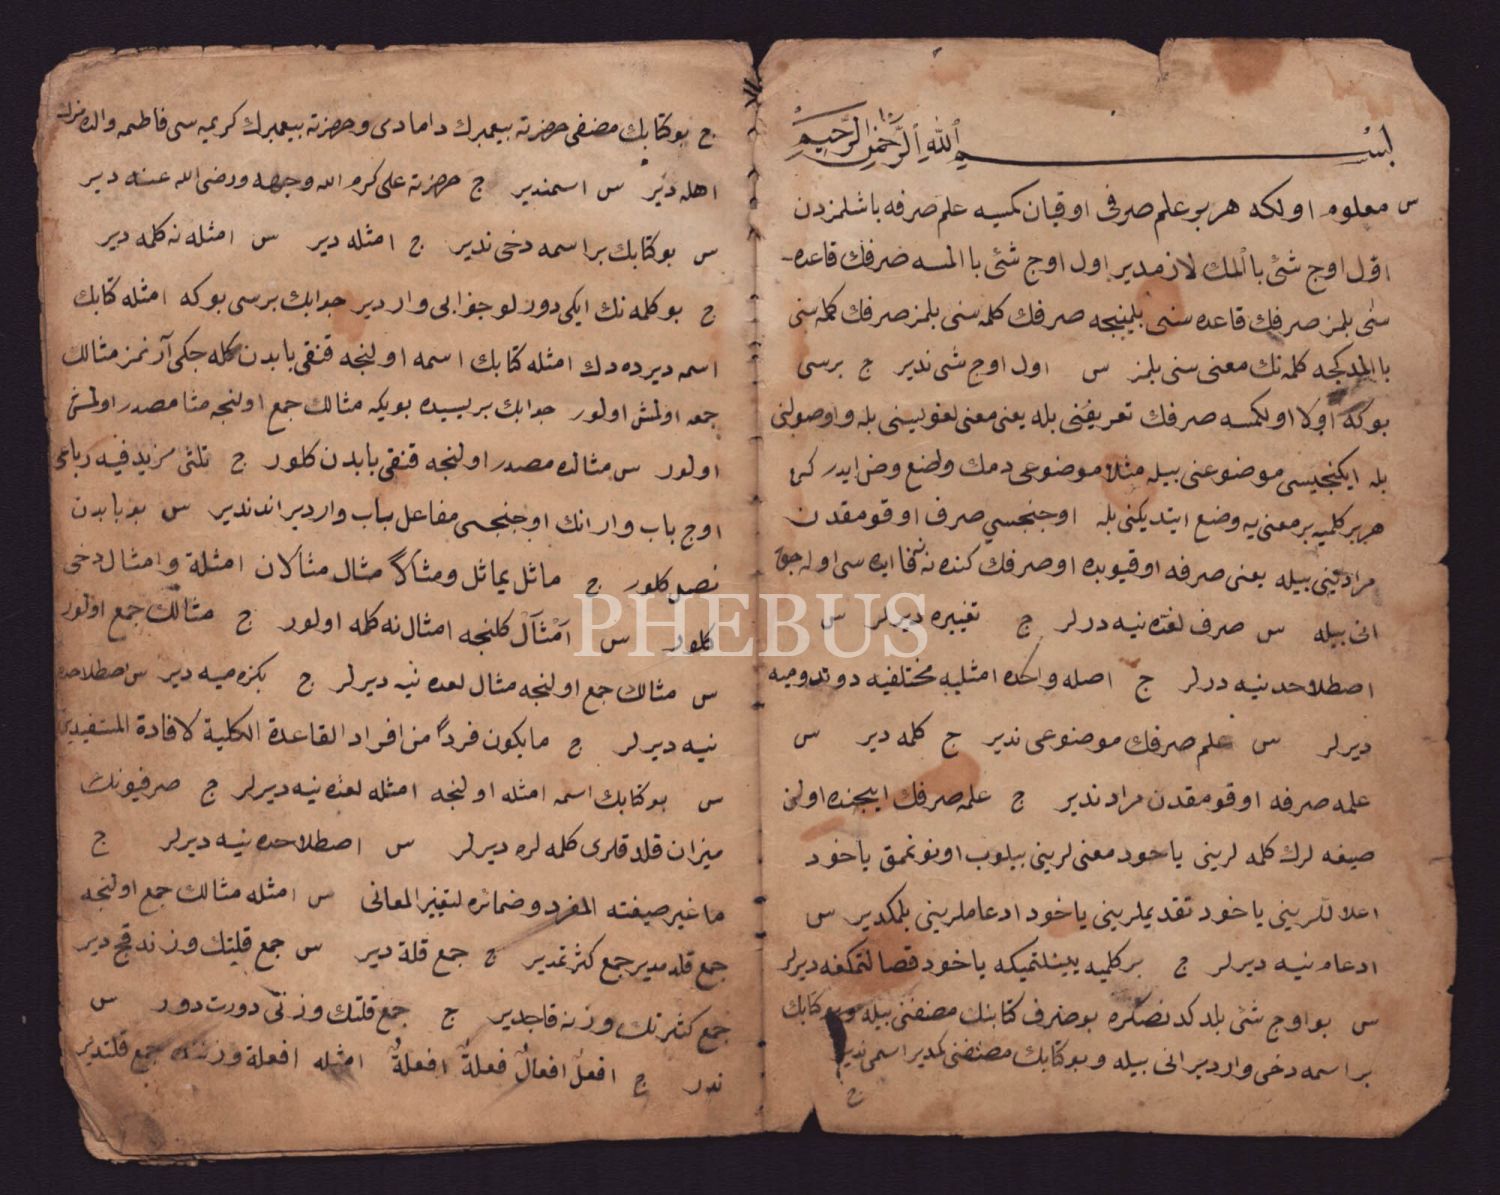 بسم الله الرحمن الرحيم
س معلوم اولكه هر بر علم صرفى اوقيان كمسيه علم صرفه باشلمزدن
اوّل اوج شئ بالمك لازمدير اول اوج شئ باالمسه صرفك قاعده
سنى بلمز صرفك قاعده سنى بلمينجه صرفك كلمه سنى بلمز صرفك كلمه سنى
كلمه نك معنى سنى بلمز س اول اوج شى ندير ج برسى
بوكه اوّلا اولكمسه صرفك تعريفنى بله يعنى معنى لغوليسنى بله
بله ايكنجيسى موضوعنى بيله مثلا موضوعى دمك وضع
هر بر كلميه بر معنى يه وضع ايتديكنى بله اوجنجسي صرف اوقومقدن
مرادينى بيله يعنى صرفه اوقيوبده اوصرفك كنده نه
انى بيله س صرف لغتده نيه درلر ج تغييره ديرلر س
اصطلاحده نيه درلر ج اصله واحده امثليه مختلفيه
ديرلر س علم صرفك موضوعى ندير ج كلمه دير س
علمه صرفه اوقومقدن مراد ندير ج علمه صرفك ايچنده اولن
صيغه لرك كلمه لرينى ياخود معنى لرينى بيلوب اونوتمق ياخود
اعلاللرينى ياخود تقديملرينى ياخود ادعاملرينى بلمكدير س
ادعام نيه ديرلر ج بر كلميه ياخود ديرلر
س بو اوج شئ بلدكدنصكره بو صرف كتابنك مصنفنى بيله وبو كتابك
بر اسمه دخى وارديرانى بيله وبوكتابك مصنفنى كمدير اسمى ندير
ج
ج بو كتابك مصنفى حضرته بيغمبرك دامادى وحضرته بيغمبرك كريمه سى فاطمه والده
اهله دير س اسمندير ج حضرته على كرم الله وجهه ورضى الله عنه دير
س بو كتابك بر اسمه دخى ندير ج امثله دير س امثله نه كلمه دير
ج بو كلمه نك ايكى دورلو جوابى واردير جوابك برسى بوكه امثله كتابك
اسمه ديرده دك امثله كتابك اسمه اولنجه قنقى بابدن كله مثالك
جمعه اولمش اولور جوابك بريسيده بويكه مثالك جمع اولنجه مثا مصدر اولمش
اولور س مثالده مصدر اولنجه قنقى بابدن كلور ج ثلثى مزيد فيه رباعى
اوج باب وار انك اوجنجسى مفاعل باب واردير اندندير س بو بابدن
نصل كلور ج ماثل يماثل ومثالا مثال مثالان امثلة وامثال دخى
كلور س امثال كلنجه امثال نه كلمه اولور ج مثالك جمع اولور
س مثالك جمع اولنجه مثال لغده نيه ديرلر ج بكزه ميه دير س اصطلاحده
نيه ديرلر ج ما يكون فردًا من افراد القاعدة الكلية لافادة المستفيدين
س بو كتابك اسمه امثله اولنجه امثله لغتده نيه ديرلر ج صرفيونك
ميزان قلدقلرى كلمه لره ديرلر س اصطلاحده نيه ديرلر ج
ما غير صيغته المفرد وضمائره لتغيير المعانى س امثله مثالك جمع اولنجه
جمع قله مدير جمع كثرتمدير ج جمع قلة دير س جمع قلتك وزنه قچ دير
جمع كثرتك وزنه قاجدير ج جمع قلتك وزنى دورت دور س
ندر ج افعل افعال فعلة افعلة امثله افعلة وزننده جمع قلتدير